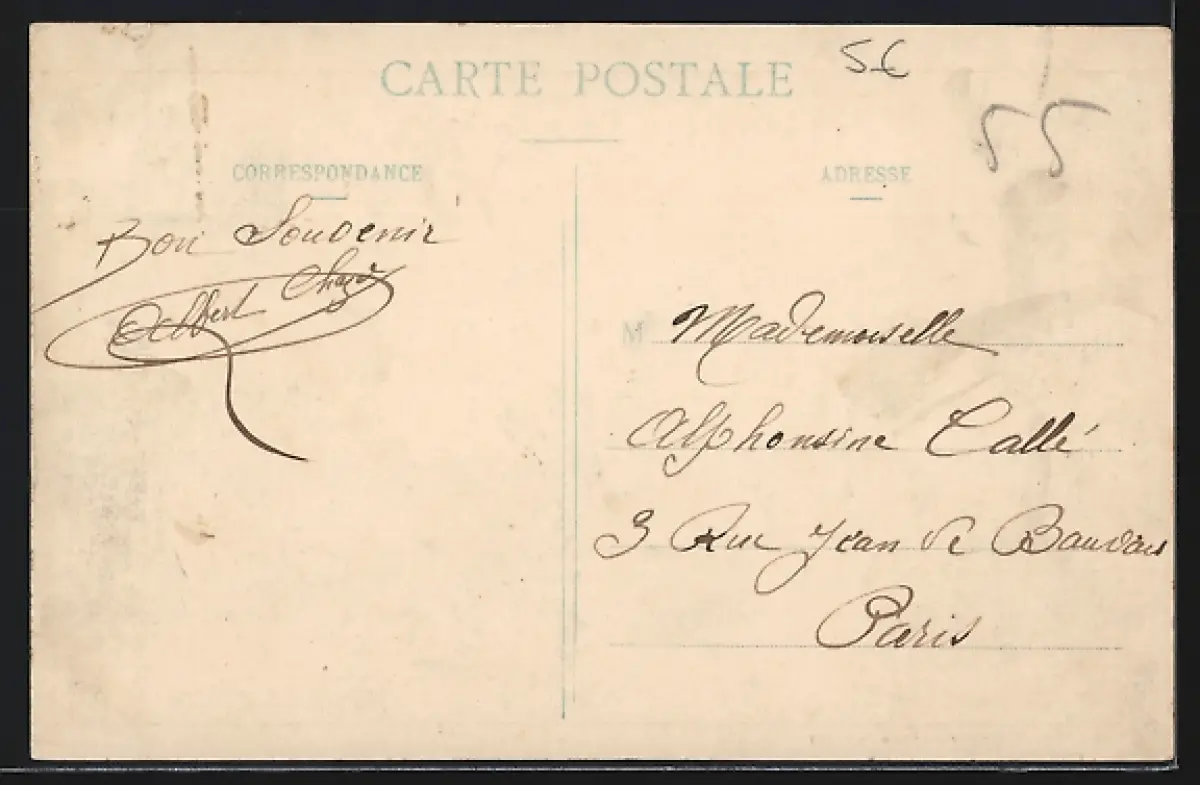 CARTE POSTALE
5€
55
CORRESPONDANCE
ADRESSE
Bon Souvenir
Albert
M Mademoiselle
Alphonsine Callé
3 Rue Jean de Bauvais
Paris